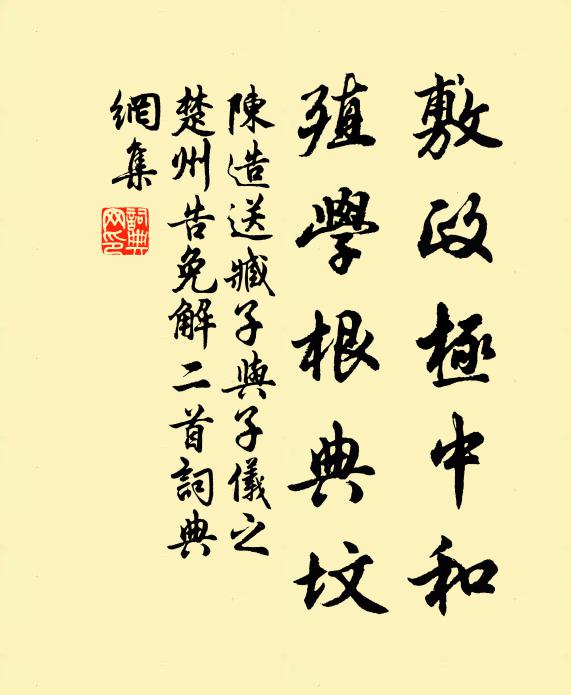 敷政極中和
殖學根典墳
陳造送臧子與子儀之
楚州告免解二首詞典
網集
詞典网印